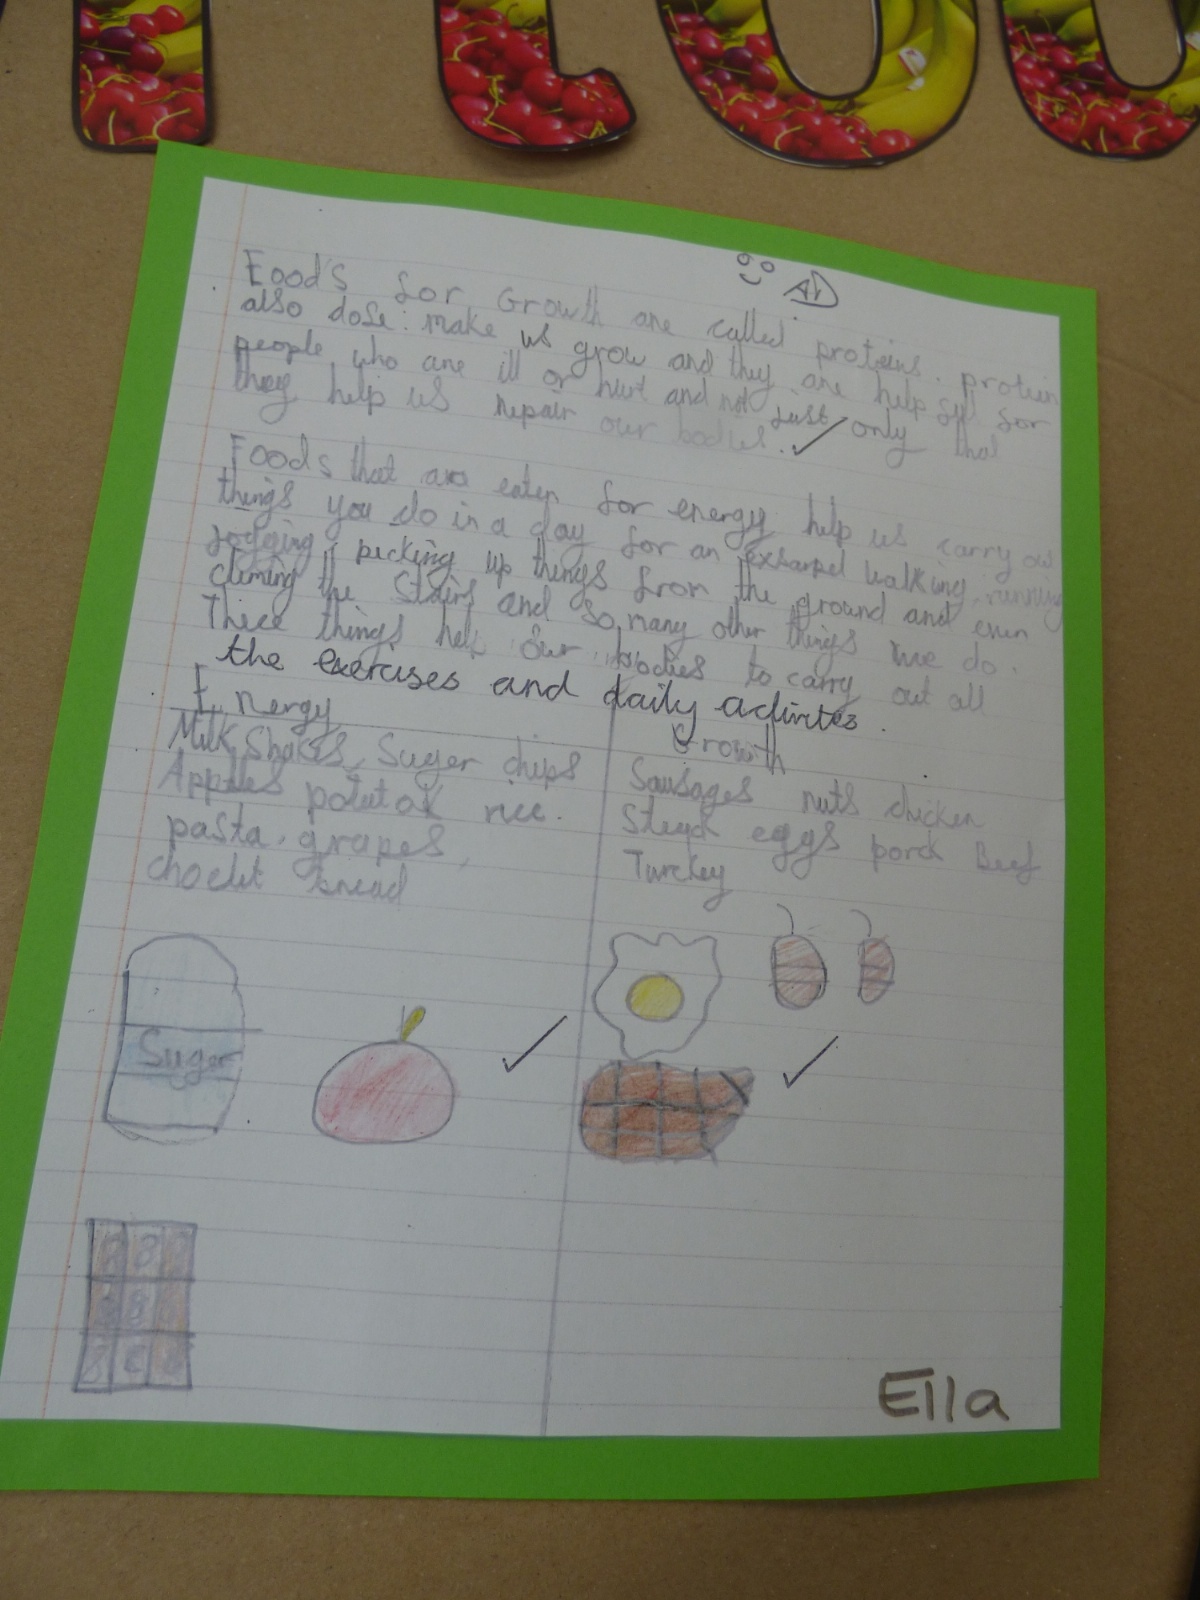 Foods for Growth are called proteins. protein
also dose make us grow and they are help full for
people who are ill or hurt and not just only that
they help us repair our bodies.
Foods that are eaten for energy help us carry out
things you do in a day for an exsampel walking, running
jogging picking up things from the ground and even
climing the Stairs and so many other things we do.
These things help our bodies to carry out all
the exercises and daily activites.
Energy
Milk Shakes, Suger chips
Apples potatos rice.
pasta. grapes,
choclet bread
Growth
Sausages nuts chicken
Steack eggs porck Beef
Turckey
Suger
Ella